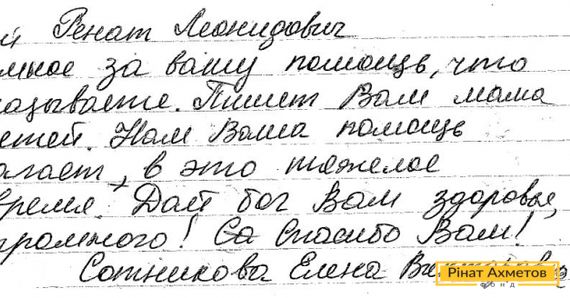 й Ренат Леонидович
омное за вашу помощь, что
азываете. Пишет Вам мама
етей. Нам Ваша помощь
огает, в это тяжелое
время. Дай бог Вам здоровья,
громного! Са Спасибо Вам!
Сотникова Елена
Рінат Ахметов
Фонд